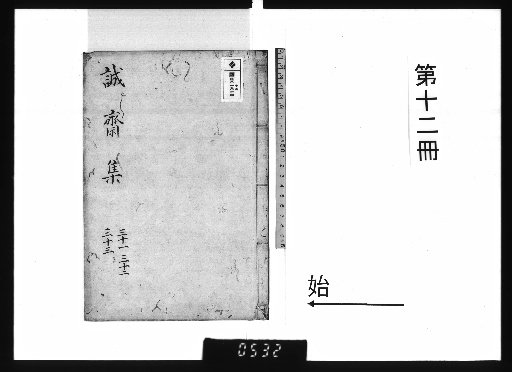 第十二冊
始
誠齋集
三十一 三十二
三十三
0532